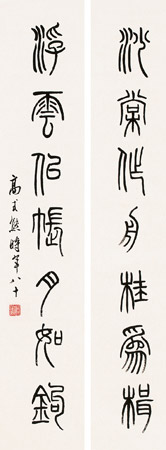 沙棠作舟桂為楫
浮雲似帳月如鉤
高式熊時年八十